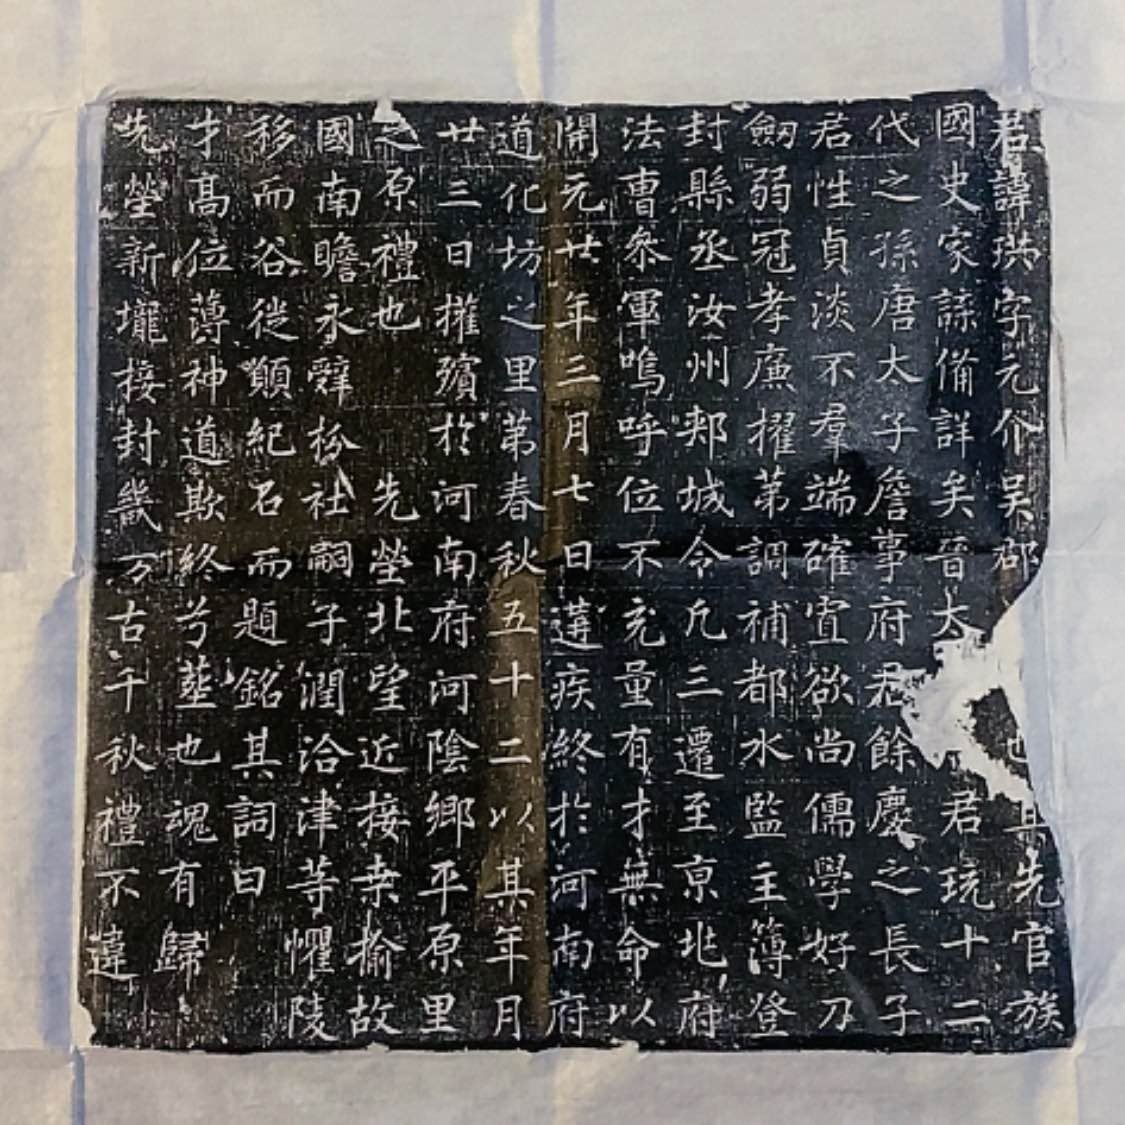 君諱珙字元介吴郡也其先官族
國史家諜備詳矣晉太君玩十二
代之孫唐太子詹事府君餘慶之長子
君性貞淡不羣端確寡欲尚儒學好刀
劒弱冠孝廉擢苐調補都水監主簿登
封縣丞汝州郟城令凢三遷至京地府
法曹叅軍嗚呼位不充量有才無命以
開元廿年三月七日遘疾終於河南府
道化坊之里苐春秋五十二以其年月
廿三日攉殯於河南府河陰鄉平原里
之原禮也先塋北望近接桒榆故
國南瞻永辭枌社嗣子潤洽津等懼陵
移而谷徙顛紀石而題銘其詞曰
才高位薄神道欺終兮塟也魂有歸
先塋新壠接封畿万古千秋禮不違